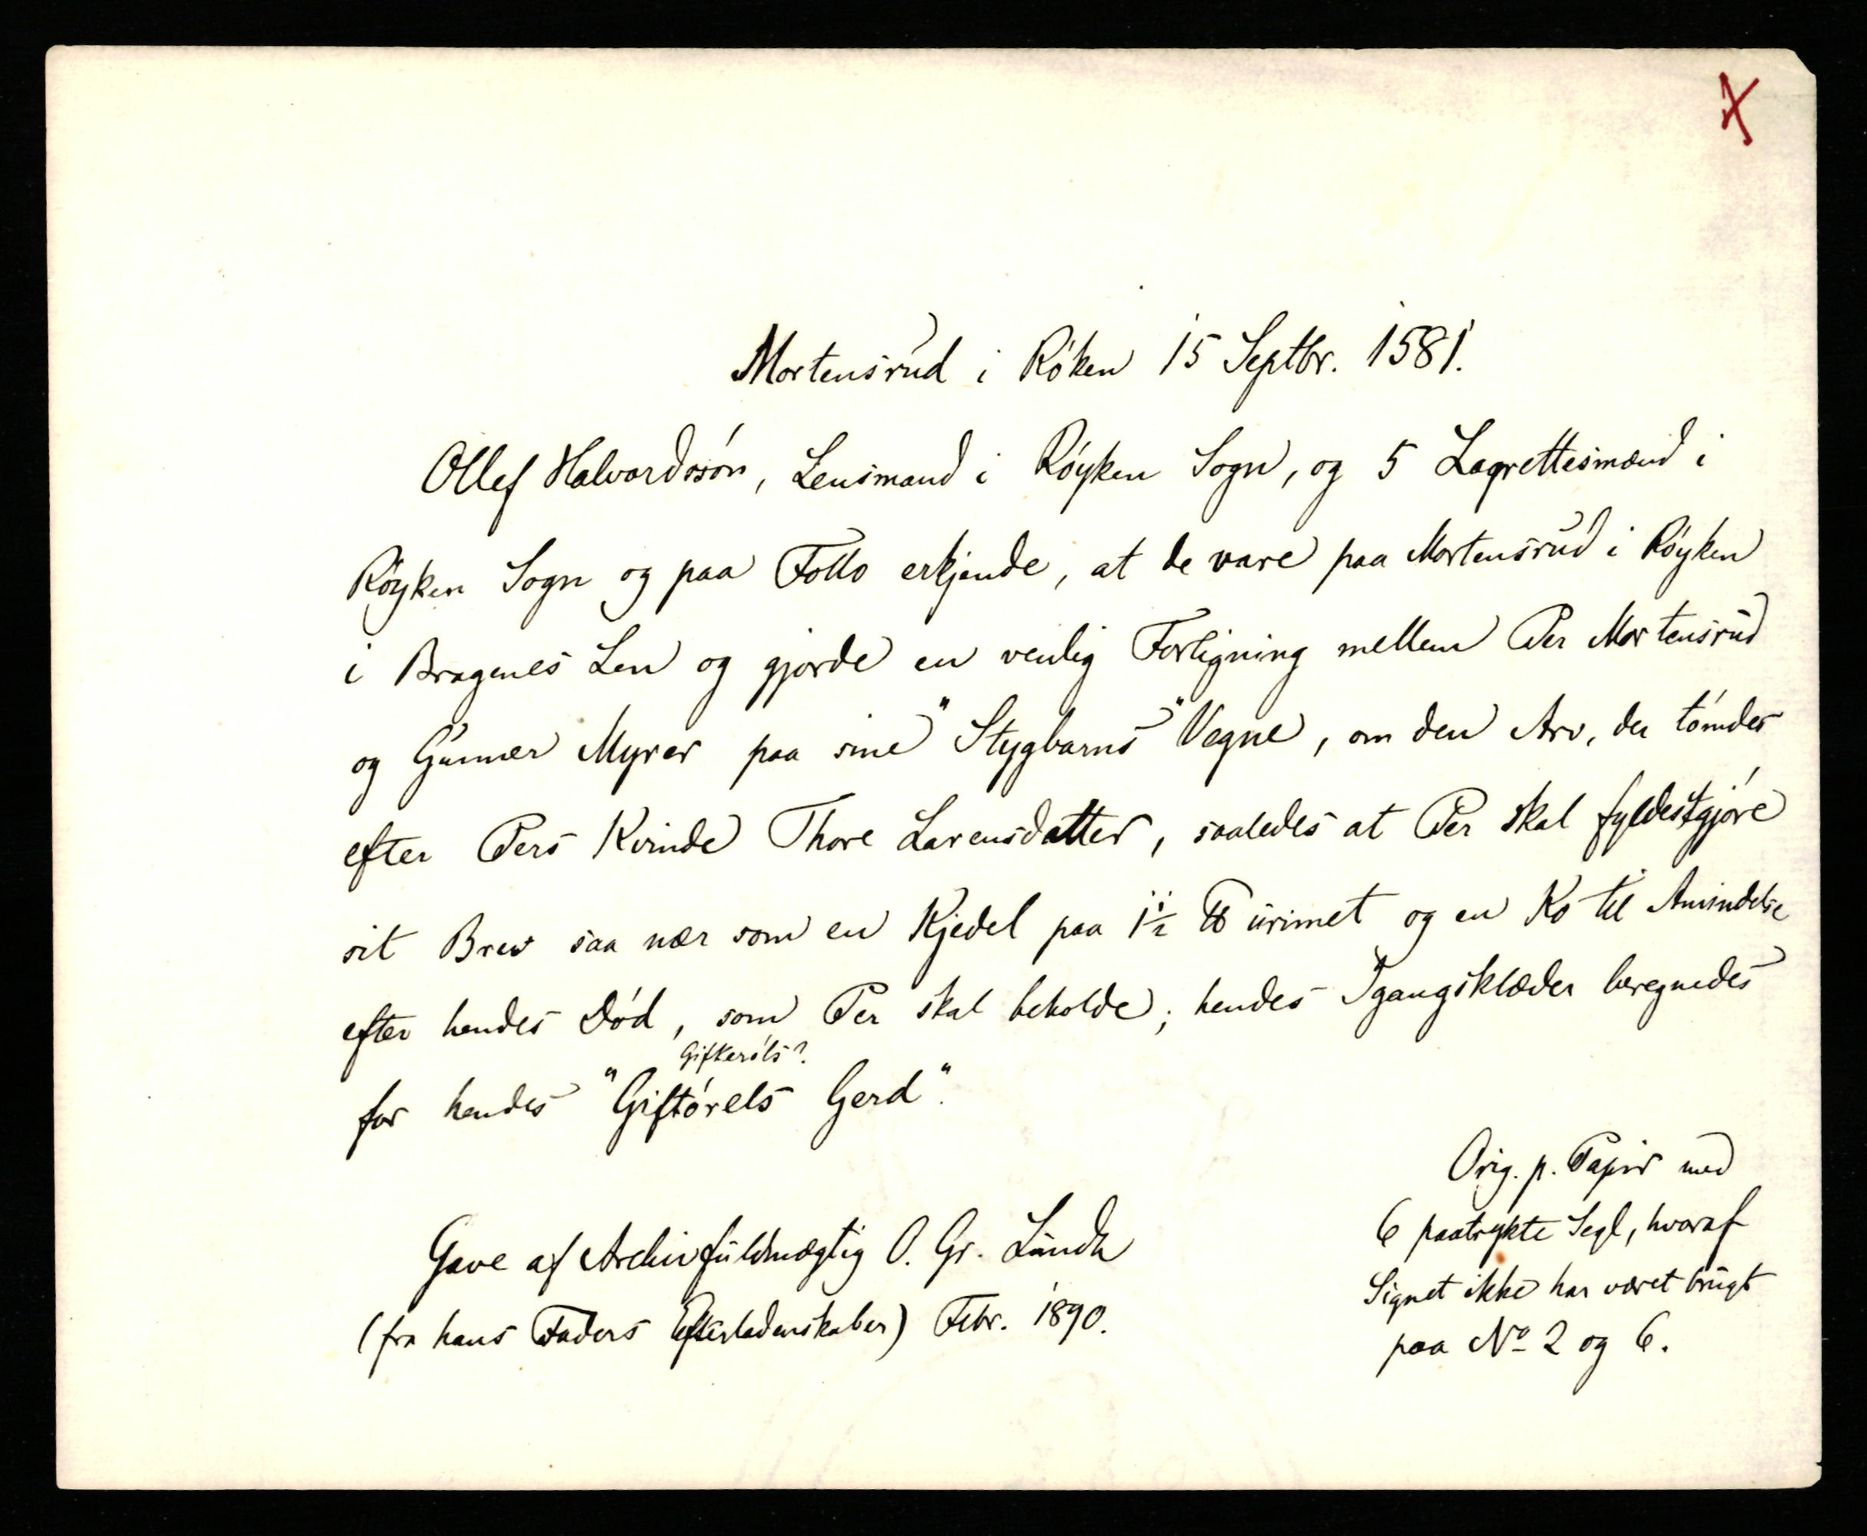 Mortensrud i Róken 15 Septbr. 1581.
Ollef Halvordssón, Lensmand i Róyken Sogn, og 5 Lagrettesmænd i
Róyken Sogn og paa Follo erkjende, at de vare paa Mortensrud i Róyken
i Bragenes Len og gjorde en venlig Forligning mellem Per Mortensrud
og Gunner Myrer paa sine "Stygbarns" Vegne, om den Arv, der tómdes
efter Pers Kvinde Thore Larensdatter, saaledes at Per skal fyldestgjóre
sit Brev saa nær som en Kjedel paa 1½ ℔ urimet og en Ko til Amindelse
efter hendes Dód, som Per skal beholde; hendes Igangsklæder beregnedes
Gifkeróls?
for hendes "Giftórels Gerd".
Orig. p. Papir med
6 paatrykte Segl, hvoraf
Signet ikke har været brugt
paa No 2 og 6.
Gave af Archivfuldmægtig O. Gr. Lundh
(fra hans Faders Efterladenskaber) Febr. 1890.